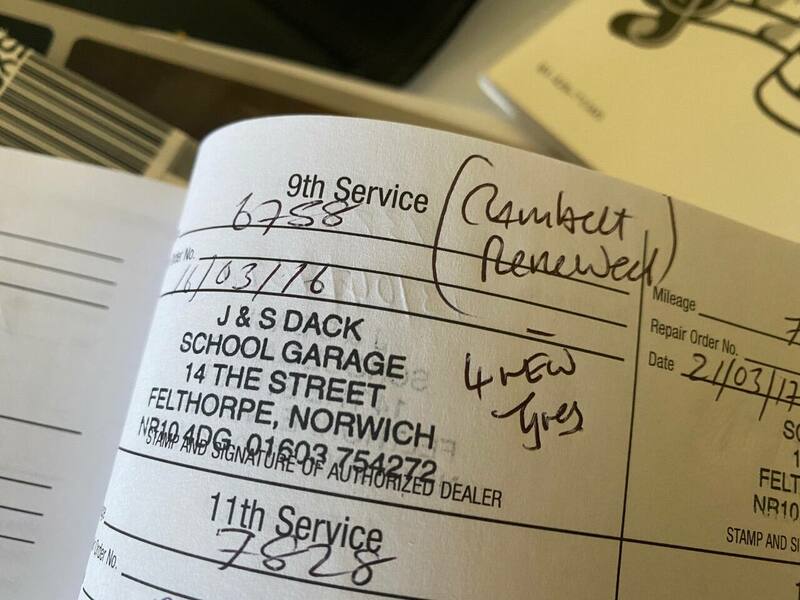 9th Service
6788
(Cambelt
Renewed)
der No.
16/03/16
J & S DACK
SCHOOL GARAGE
14 THE STREET
FELTHORPE, NORWICH
NR10 4DG. 01603 754272
STAMP AND SIGNATURE OF AUTHORIZED DEALER
4 NEW
Tyres
11th Service
7828
der No.
Mileage 7
Repair Order No.
Date 21/03/17
SC
1
FELT
NR10
STAMP AND SI